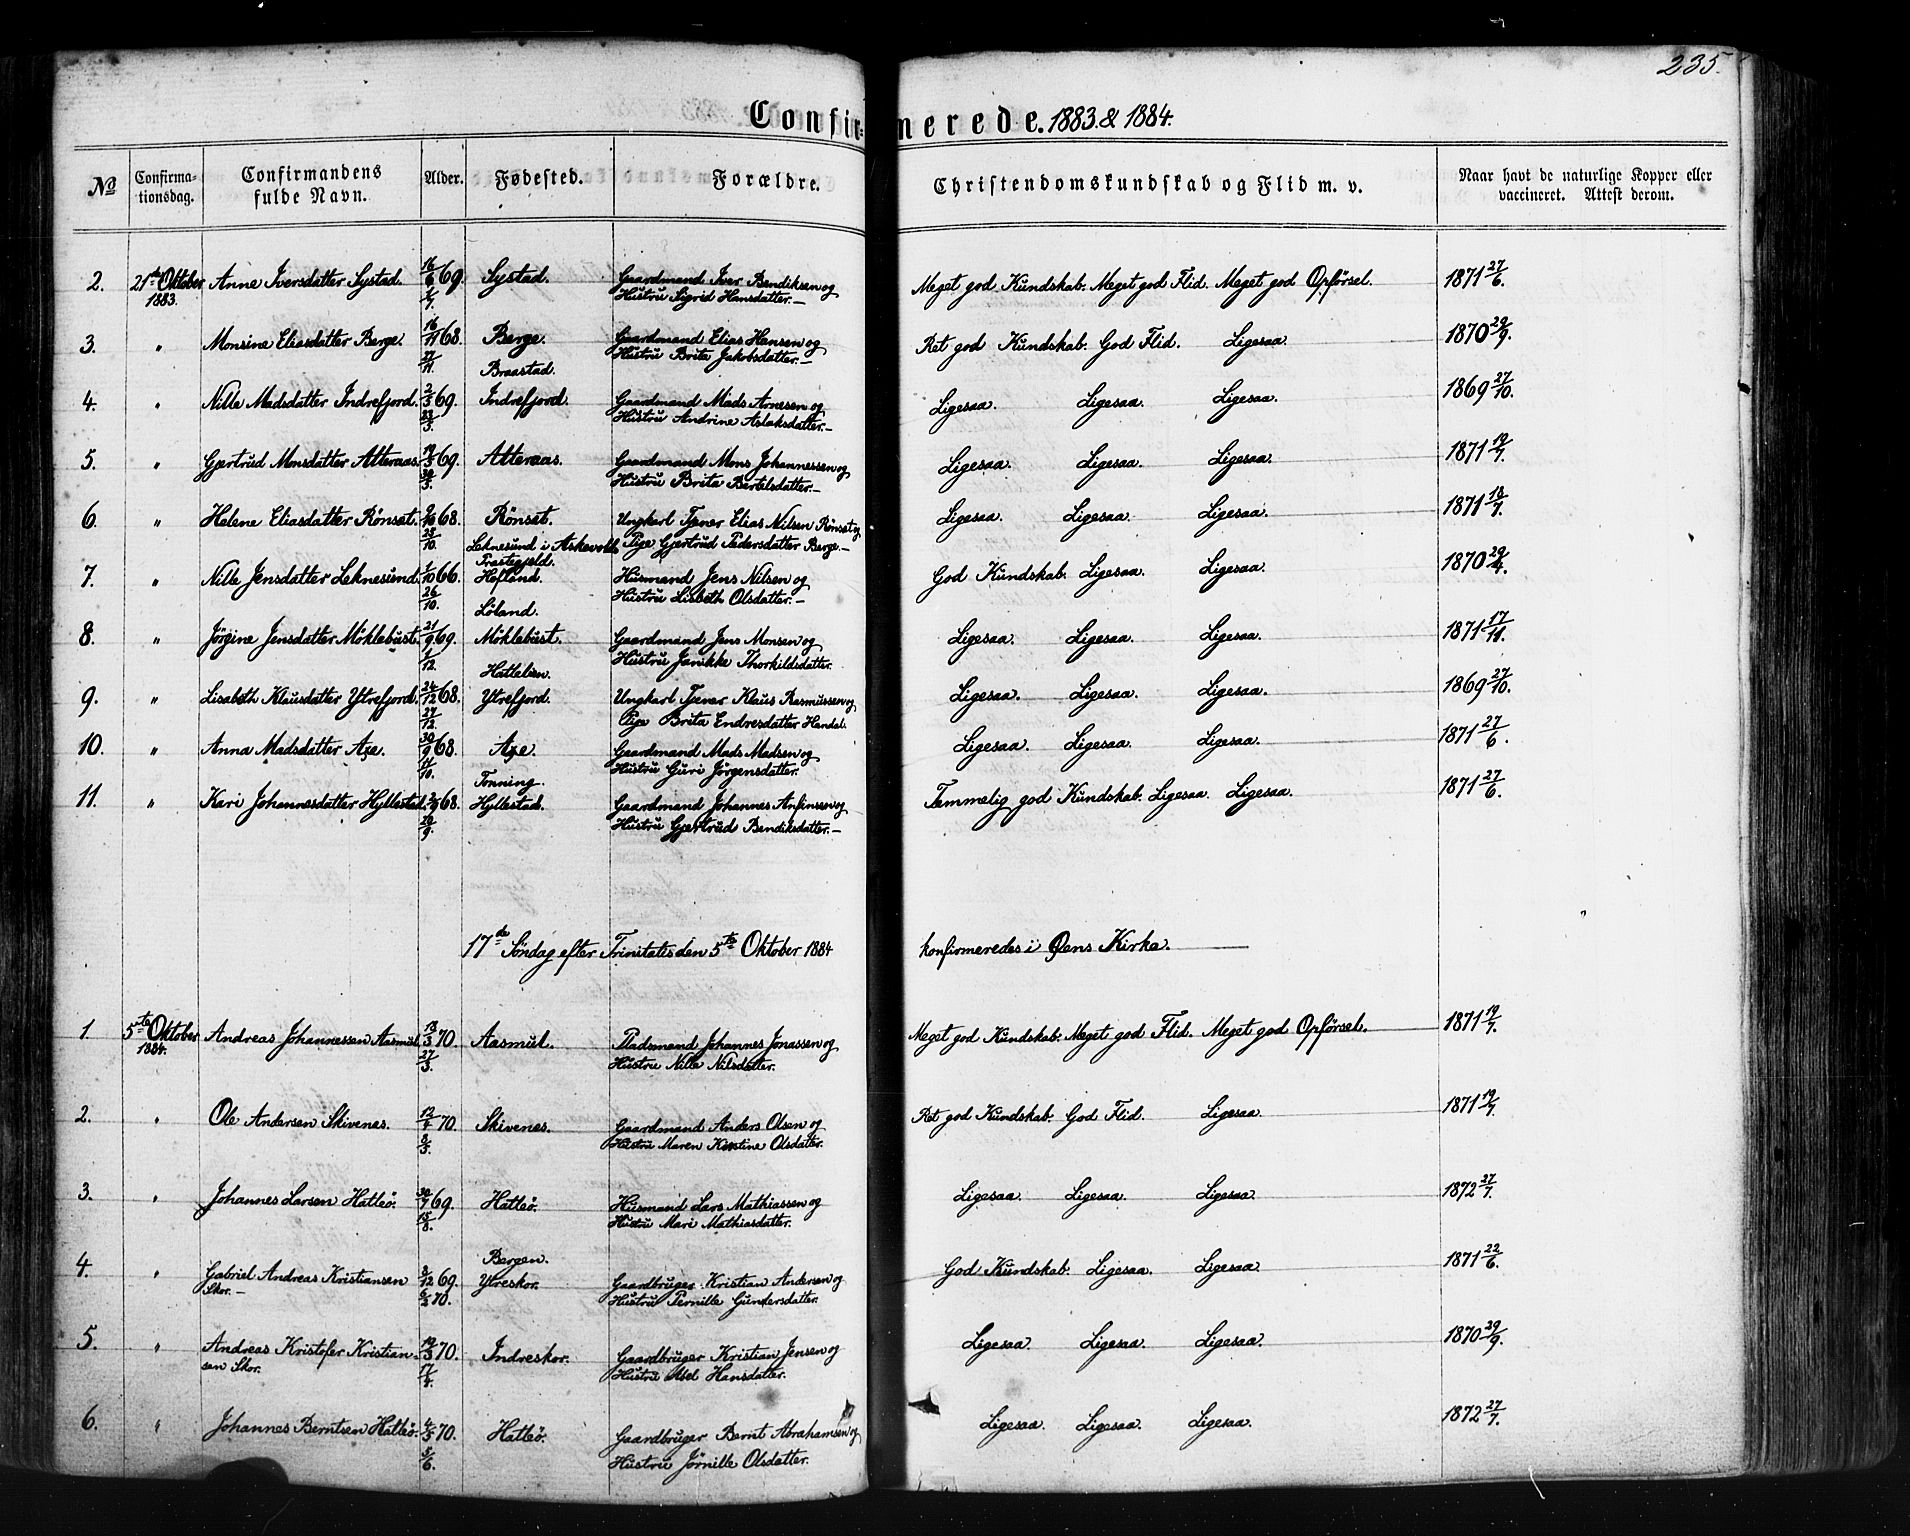 235.
Confirmerede. 1883 & 1884.
No Confirmationsdag. Confirmandens fulde Navn. Alder. Fødested. Forældre. Christendomskundskab og Flid m. v. Naar havt de naturlige Kopper eller vaccineret. Attest derom.
2. 21de Oktober Anne Iversdatter Systad. 16/6 69. Systad. Gaardmand Iver Bendiksen og Meget god Kundskab. Meget god Flid. Meget god Opførsel. 1871 27/6.
1883. Hustru Sigrid Hansdatter.—
3. " Monsine Eliasdatter Berge. 16/11 68. Berge. Gaardmand Elias Hansen og Ret god Kundskab. God Flid. Ligesaa. 1870 29/9.
27/11. Hustru Brita Jakobsdatter.—
Braastad.
4. " Nille Madsdatter Indrefjord. 2/3 69. Indrefjord. Gaardmand Mads Arnesen og Ligesaa. Ligesaa. Ligesaa. 1869 27/10.
23/3. Hustru Andrine Aslaksdatter.—
5. " Gjertrud Monsdatter Atteraas. 19/3 69. Atteraas. Gaardmand Mons Johannessen og Ligesaa. Ligesaa. Ligesaa. 1871 19/7.
30/3. Hustru Brita Bertelsdatter.—
6. " Helene Eliasdatter Rønset. 68. Rønset. Ungkarl Tjener Elias Nilsen Rønset og Ligesaa. Ligesaa. Ligesaa. 1871 18/7.
23/10. Leknesund i Askevold Pige Gjertrud Pedersdatter Berge.—
Præstegjeld.
7. " Nille Jensdatter Leknesund. 1/10 66. Hofland. Husmand Jens Nilsen og God Kundskab. Ligesaa. Ligesaa. 1870 29/4.
26/10. Hustru Lisbeth Olsdatter.—
Løland.
8. " Jørgine Jensdatter Møklebust. 21/9 69. Møklebust. Gaardmand Jens Monsen og Ligesaa. Ligesaa. Ligesaa. 1871 17/11.
1/12. Hustru Janikke Thorkildsdatter.
Hatlelien.
9. " Lisabeth Klausdatter Ytrefjord. 24/12 68. Ytrefjord. Ungkarl Tjener Klaus Rasmussen og Ligesaa. Ligesaa. Ligesaa. 1869 27/10.
27/12 Pige Brita Endresdatter Handal.
10. " Anna Madsdatter Axe. 30/9 68. Axe. Gaardmand Mads Madsen og Ligesaa. Ligesaa. Ligesaa. 1871 27/6.
11/10. Hustru Guri Jørgensdatter.
Tonning.
11. " Kari Johannesdatter Hyllestad. 68. Hyllestad. Gaardmand Johannes Anfinsen og Temmelig god Kundskab. Ligesaa. Ligesaa. 1871 27/6.
20/9. Hustru Gjertrud Bendiksdatter.—
17de Søndag efter Trinitatis den 5te Oktober 1884 konfirmeredes i Øens Kirke.
1. 5te Oktober Andreas Johannessen Aasmul. 13/3 70. Aasmul. Pladsmand Johannes Jonassen og Meget god Kundskab. Meget god Flid. Meget god Opførsel. 1871 19/7.
1884. 27/3. Hustru Nille Nilsdatter.
2. " Ole Andersen Skivenes. 12/4 70. Skivenes. Gaardmand Anders Olsen og Ret god Kundskab. God Flid. Ligesaa. 1871 19/7.
8/5. Hustru Maren Kirstine Olsdatter.
3. " Johannes Larsen Hatleö. 30/7 69. Hatleö. Husmand Lars Mathiassen og Ligesaa. Ligesaa. Ligesaa. 1872 27/7.
15/8. Hustru Mari Mathiasdatter.
Bergen.
4. " Gabriel Andreas Kristiansen 2/12 69. Ytreskor. Gaardbruger Kristian Andersen og God Kundskab. Ligesaa. Ligesaa. 1871 22/6.
Skor.— 6/2 70. Hustru Pernille Gundersdatter.
5. " Andreas Kristofer Kristian- 19/3 70. Indreskor. Gaardbruger Kristian Jensen og Ligesaa. Ligesaa. Ligesaa. 1870 29/9.
sen Skor. 17/4. Hustru Abel Hansdatter.
6. " Johannes Berntsen Hatleö. 4/5 70. Hatleö. Gaardbruger Bernt Abrahamsen og Ligesaa. Ligesaa. Ligesaa. 1872 27/7.
5/6. Hustru Jørnille Olsdatter.